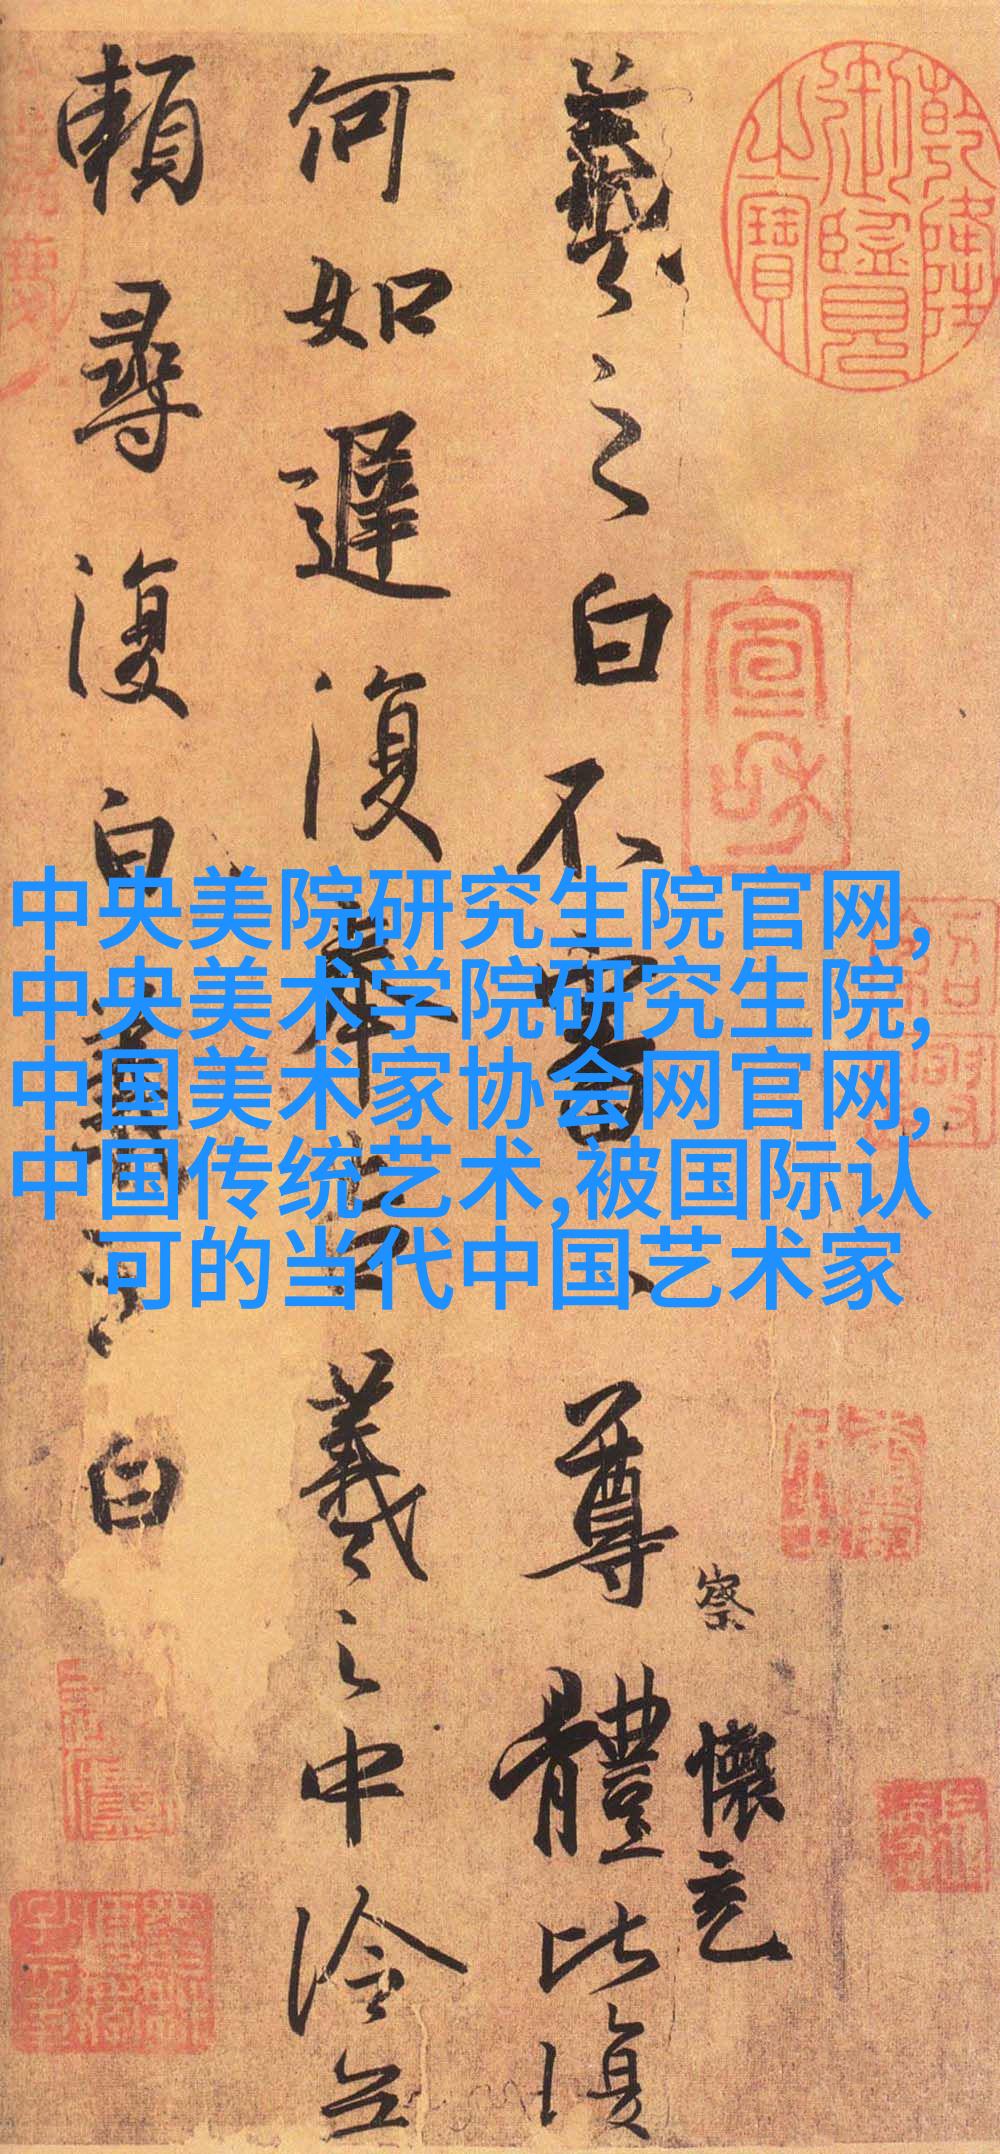 乾隆御覽之寶
宣和
察
懷充
羲之白不審尊體比復
何如遲復奉告羲之中冷無
賴尋復白羲之白
中央美院研究生院官网,
中央美术学院研究生院,
中国美术家协会网官网,
中国传统艺术,被国际认
可的当代中国艺术家